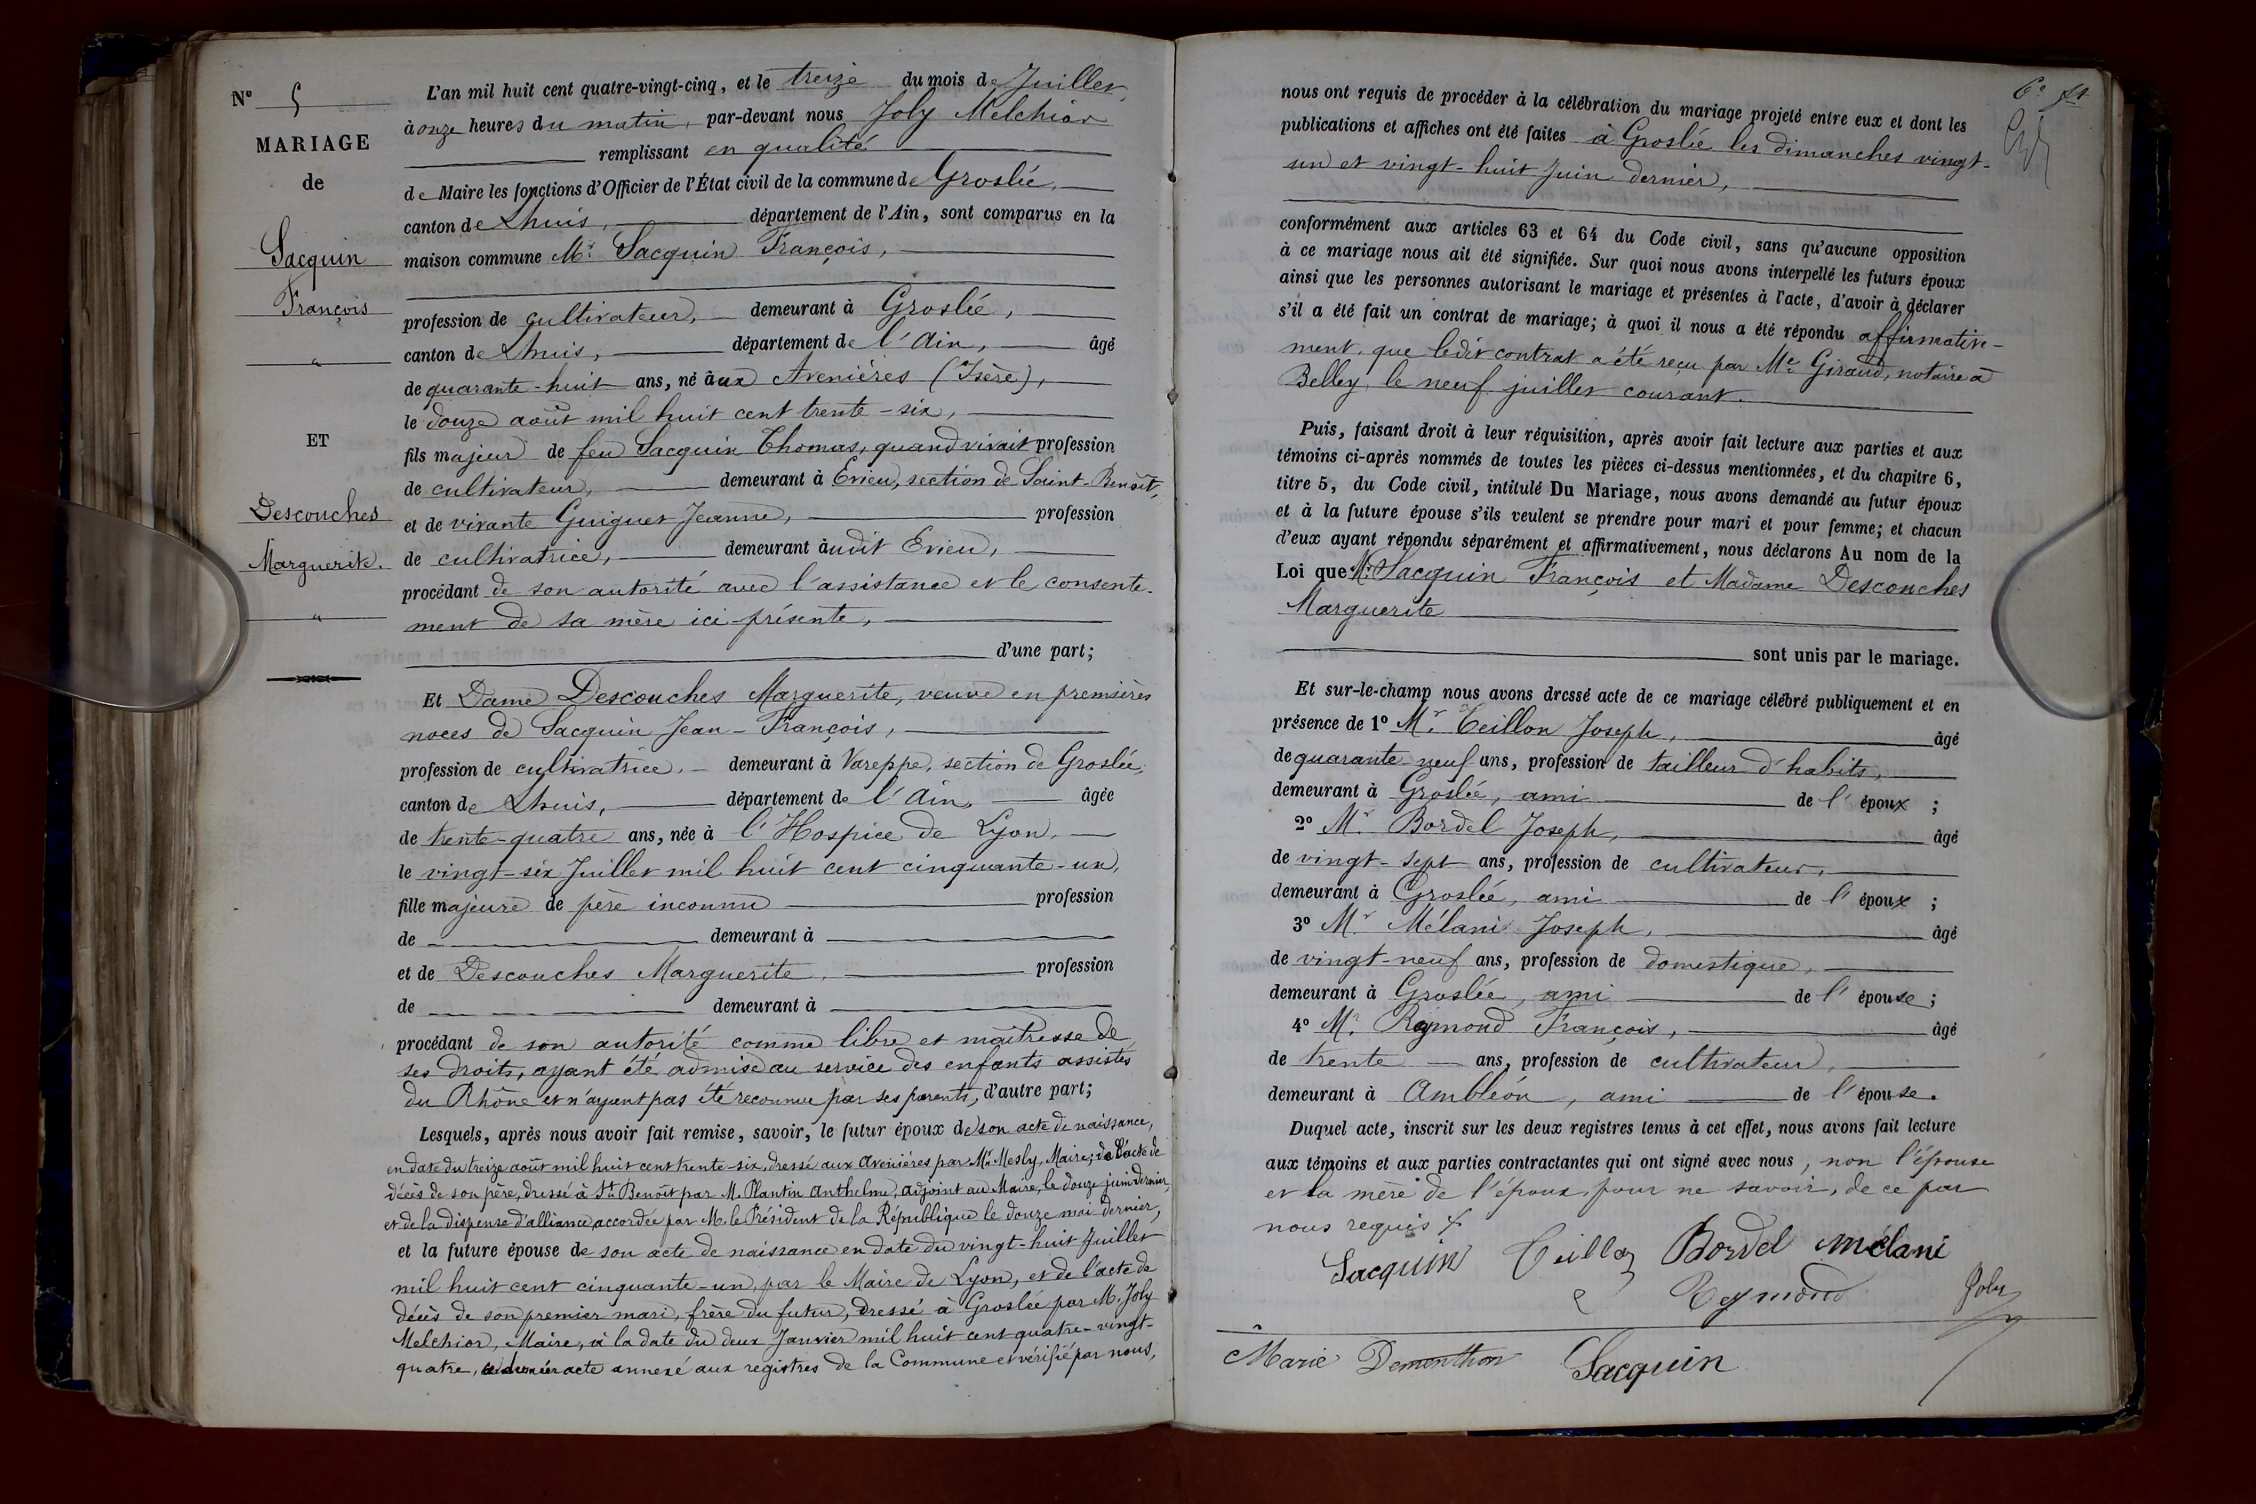 N° 5
MARIAGE
de
Sacquin
François
"
ET
Descouches
Marguerite.
"
L'an mil huit cent quatre-vingt-cinq, et le treize du mois de Juillet,
à onze heures du matin, par-devant nous Joly Melchior
remplissant en qualité
de Maire les fonctions d'Officier de l'État civil de la commune de Groslée,
canton de Lhuis, département de l'Ain, sont comparus en la
maison commune Mr. Sacquin François,
profession de cultivateur, demeurant à Groslée,
canton de Lhuis, département de l'Ain, âgé
de quarante-huit ans, né aux Avenières (Isère),
le douze août mil huit cent trente-six,
fils majeur de feu Sacquin Thomas, quand vivait profession
de cultivateur, demeurant à Evieu, section de Saint-Benoît,
et de vivante Guiguet Jeanne, profession
de cultivatrice, demeurant audit Evieu,
procédant de son autorité avec l'assistance et le consente-
ment de sa mère ici présente,
d'une part;
Et Dame Descouches Marguerite, veuve en premières
noces de Sacquin Jean-François,
profession de cultivatrice, demeurant à Vareppe, section de Groslée,
canton de Lhuis, département de l'Ain, âgée
de trente-quatre ans, née à l'Hospice de Lyon,
le vingt-six Juillet mil huit cent cinquante-un,
fille majeure de père inconnu profession
de demeurant à
et de Descouches Marguerite, profession
de demeurant à
procédant de son autorité comme libre et maîtresse de
ses droits, ayant été admise au service des enfants assistés
du Rhône et n'ayant pas été reconnue par ses parents, d'autre part;
Lesquels, après nous avoir fait remise, savoir, le futur époux de son acte de naissance,
en date du treize août mil huit cent trente-six, dressé aux Avenières par Mr. Mesly, Maire; de l'acte de
décès de son père, dressé à St Benoît par M. Plantin Anthelme, adjoint au Maire, le douze juin dernier,
et de la dispense d'alliance accordée par M. le Président de la République le douze mai dernier,
et la future épouse de son acte de naissance en date du vingt-huit Juillet
mil huit cent cinquante-un, par le Maire de Lyon, et de l'acte de
décès de son premier mari, frère du futur, dressé à Groslée par M. Joly
Melchior, Maire, à la date du deux Janvier mil huit cent quatre-vingt-
quatre, ce dernier acte annexé aux registres de la Commune et vérifié par nous,
nous ont requis de procéder à la célébration du mariage projeté entre eux et dont les
publications et affiches ont été faites à Groslée les dimanches vingt-
un et vingt-huit Juin dernier,
conformément aux articles 63 et 64 du Code civil, sans qu'aucune opposition
à ce mariage nous ait été signifiée. Sur quoi nous avons interpellé les futurs époux
ainsi que les personnes autorisant le mariage et présentes à l'acte, d'avoir à déclarer
s'il a été fait un contrat de mariage; à quoi il nous a été répondu affirmative-
ment, que ledit contrat a été reçu par Me Giraud, notaire à
Belley, le neuf juillet courant.
Puis, faisant droit à leur réquisition, après avoir fait lecture aux parties et aux
témoins ci-après nommés de toutes les pièces ci-dessus mentionnées, et du chapitre 6,
titre 5, du Code civil, intitulé Du Mariage, nous avons demandé au futur époux
et à la future épouse s'ils veulent se prendre pour mari et pour femme; et chacun
d'eux ayant répondu séparément et affirmativement, nous déclarons Au nom de la
Loi que Mr. Sacquin François et Madame Descouches
Marguerite
sont unis par le mariage.
Et sur-le-champ nous avons dressé acte de ce mariage célébré publiquement et en
présence de 1° Mr. Teillon Joseph, âgé
de quarante-neuf ans, profession de tailleur d'habits,
demeurant à Groslée, ami de l'époux;
2° Mr. Bordel Joseph, âgé
de vingt-sept ans, profession de cultivateur,
demeurant à Groslée, ami de l'époux;
3° Mr. Mélani Joseph, âgé
de vingt-neuf ans, profession de domestique,
demeurant à Groslée, ami de l'épouse;
4° Mr. Reymond François, âgé
de trente ans, profession de cultivateur,
demeurant à Ambléon, ami de l'épouse.
Duquel acte, inscrit sur les deux registres tenus à cet effet, nous avons fait lecture
aux témoins et aux parties contractantes qui ont signé avec nous, non l'épouse
et la mère de l'époux, pour ne savoir, de ce par
nous requis.
Sacquin Teillon Bordel Mélani
Reymond Joly
Marie Dementhon Sacquin